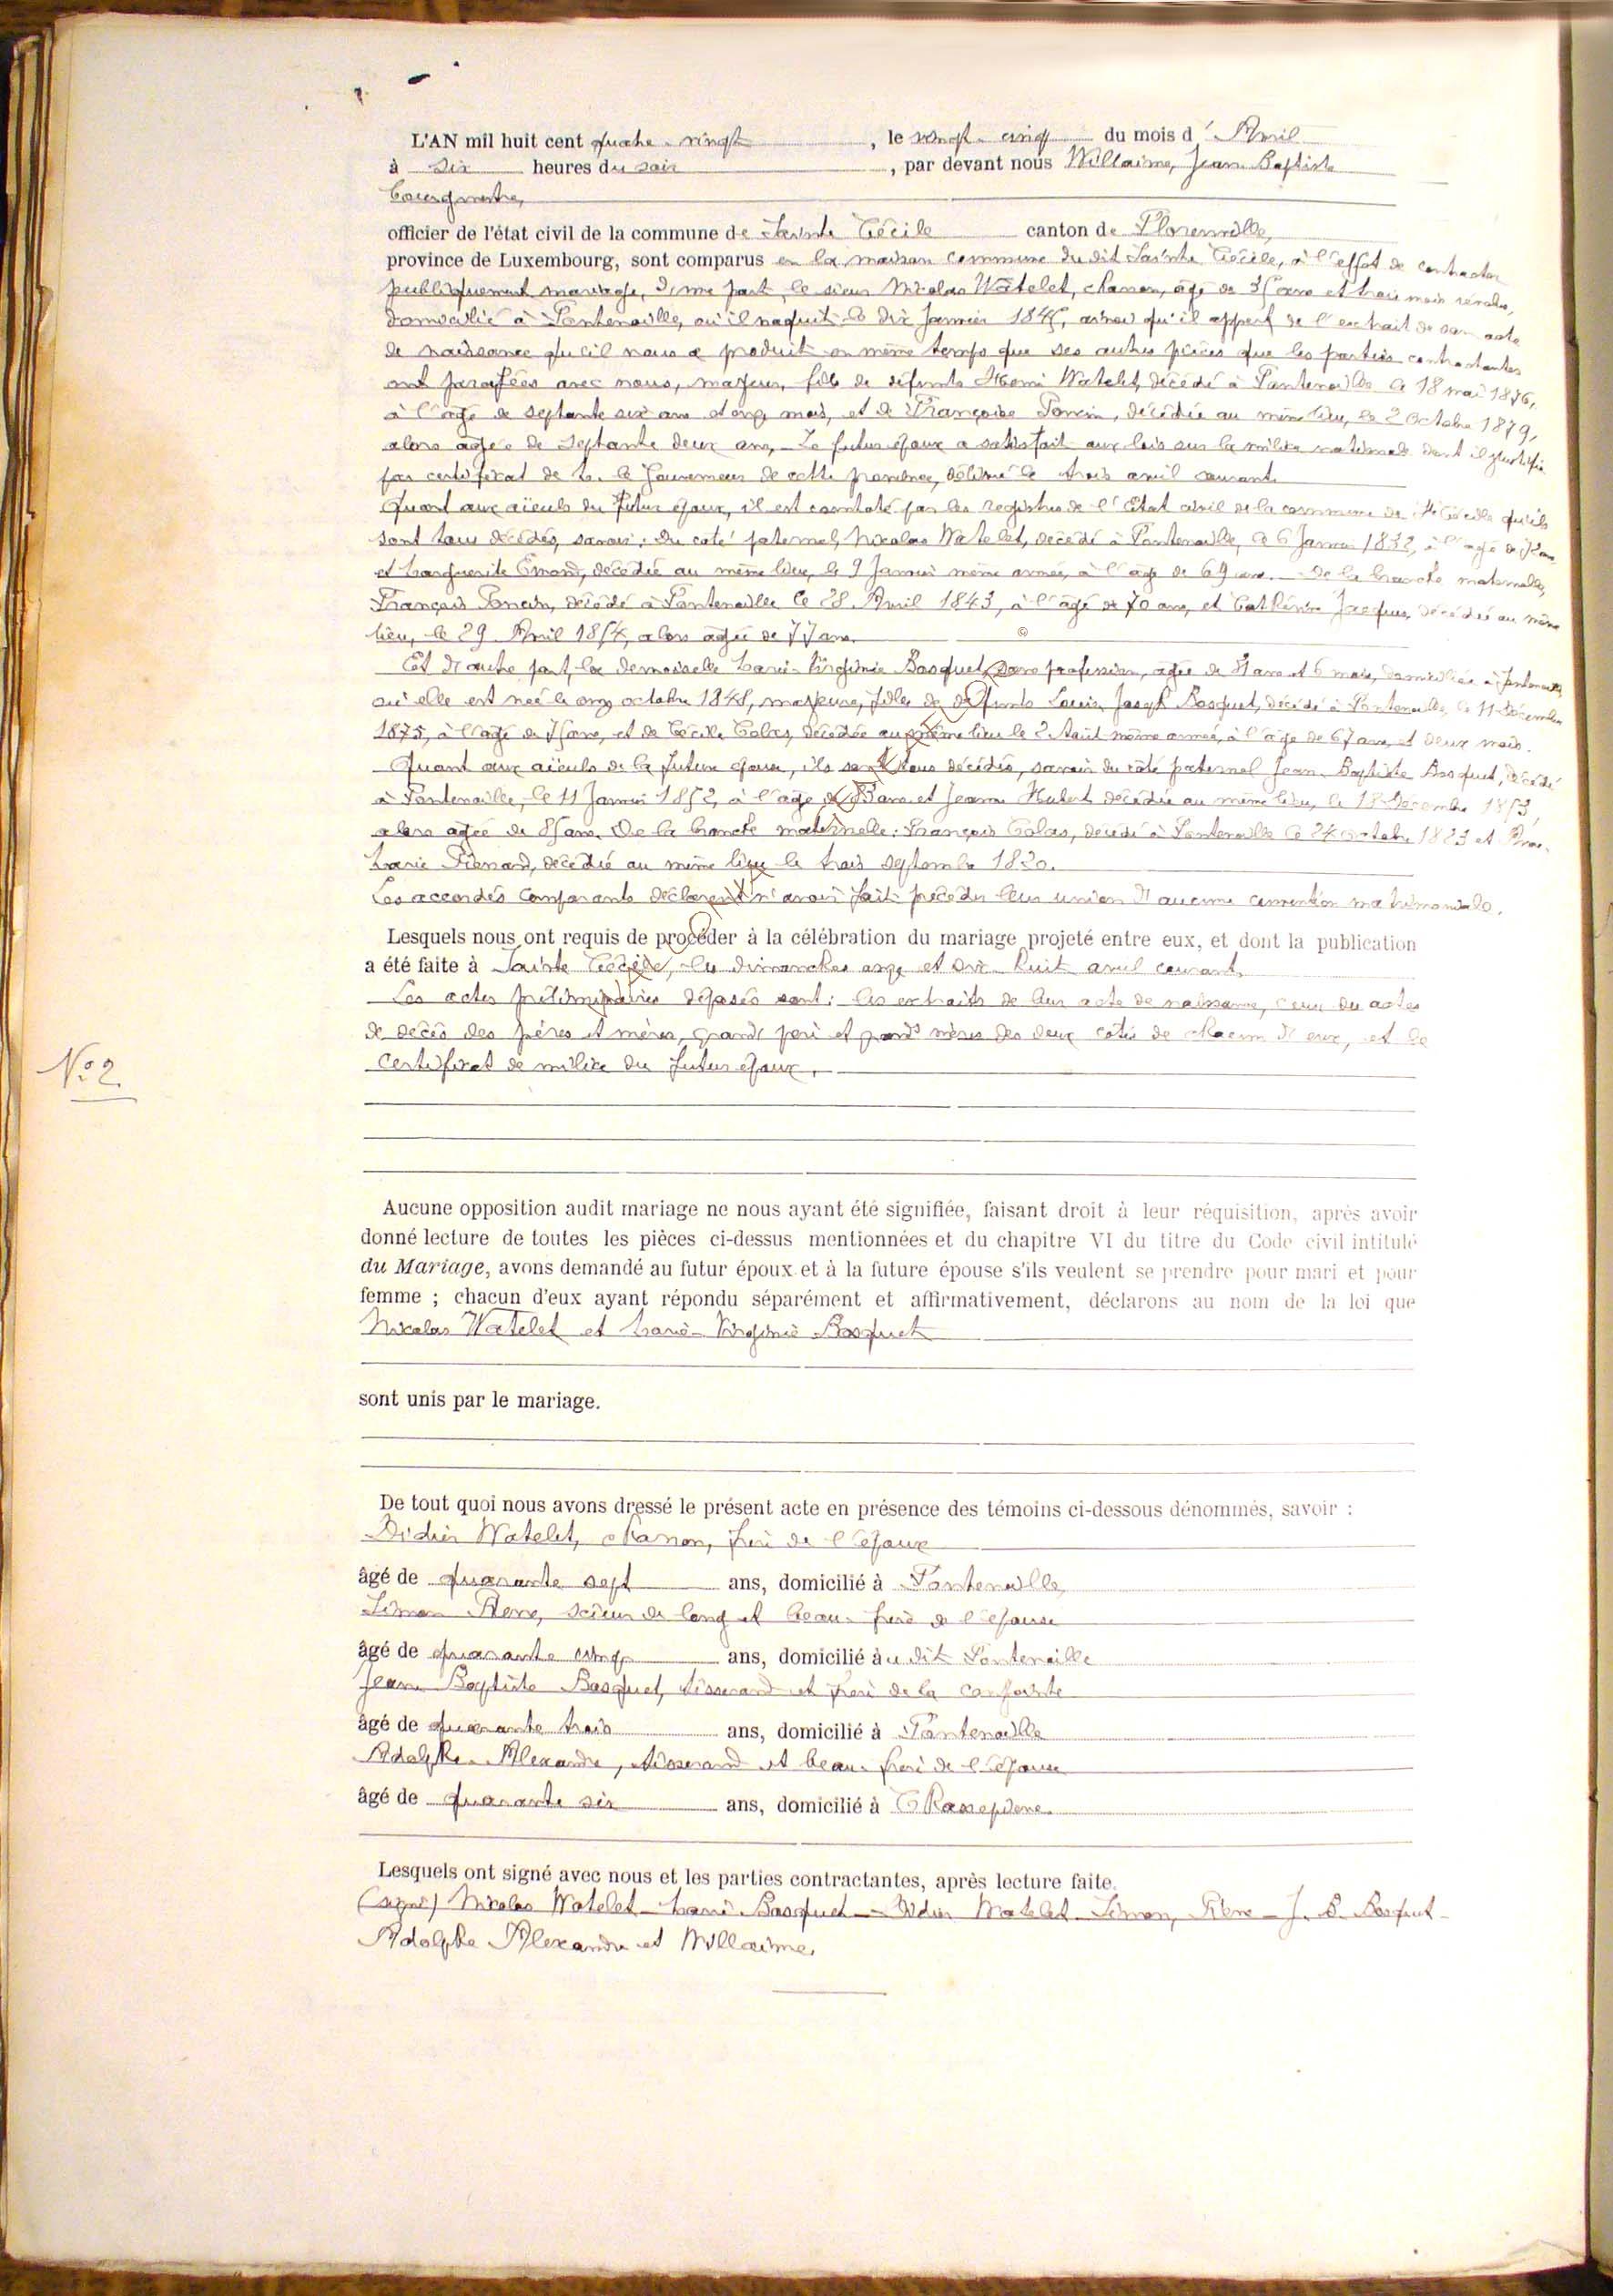 L'AN mil huit cent quatre-vingt, le vingt-cinq du mois d'Avril
à six heures du soir, par devant nous Willaime, Jean-Baptiste
bourgmestre,
officier de l'état civil de la commune de Sainte Cécile canton de Florenville,
province de Luxembourg, sont comparus en la maison commune du dit Sainte Cécile, à l'effet de contracter
publiquement mariage, d'une part, le sieur Nicolas Watelet, charron, âgé de 35 ans et trois mois révolus,
domicilié à Fontenoille, où il naquit le dix Janvier 1845, ainsi qu'il appert de l'extrait de son acte
de naissance qu'il nous a produit en même temps que les autres pièces que les parties contractantes
ont parafées avec nous, majeur, fils de défunts Henri Watelet, décédé à Fontenoille le 18 mai 1876,
à l'âge de septante six ans et onze mois, et de Françoise Poncin, décédée au même lieu, le 2 Octobre 1879,
alors âgée de septante deux ans, Le futur époux a satisfait aux lois sur la milice nationale dont il justifie
par certificat de M. le Gouverneur de cette province, délivré le trois avril courant.
Quant aux aïeuls du futur époux, il est constaté par les registres de l'Etat civil de la commune de Ste Cécile qu'ils
sont tous décédés, savoir: du coté paternel, Nicolas Watelet, décédé à Fontenoille, le 6 Janvier 1832, à l'âge de ans
et Marguerite Emond, décédée au même lieu, le 9 Janvier même année, à l'âge de 69 ans. - De la branche maternelle,
François Poncin, décédé à Fontenoille le 28 Avril 1843, à l'âgé de 70 ans, et Cathérine Jacques, décédée au même
lieu, le 29 Avril 1854, alors âgée de 77 ans.
Et d'autre part, la demoiselle Marie-Virginie Bosquet, sans profession, âgée de 31 ans et 6 mois, domiciliée à Fontenoille,
où elle est née le onze octobre 1848, majeure, fille de défunts Louis Joseph Bosquet, décédé à Fontenoille, le 11 Décembre
1875, à l'âgé de 75 ans, et de Cécile Colas, décédée au même lieu le 2 Août même année, à l'âge de 67 ans et deux mois.
Quant aux aïeuls de la future épouse, ils sont tous décédés, savoir du côté paternel Jean-Baptiste Bosquet, décédé
à Fontenoille, le 11 Janvier 1852, à l'âge de ans et Jeanne Hubert décédée au même lieu, le 18 Décembre 1853,
alors âgée de 85 ans. De la branche maternelle: François Colas, décédé à Fontenoille le 24 octobre 1823 et
Marie Pienard, décédé au même lieu le trois septembre 1820.
Les accordés comparants déclarent n'avoir fait précéder leur union d'aucune convention matrimoniale.
Lesquels nous ont requis de procéder à la célébration du mariage projeté entre eux, et dont la publication
a été faite à Sainte Cécile, les dimanches onze et dix-huit avril courant,
Les actes préliminaires déposés sont: les extraits de leur acte de naissance, ceux du actes
de décès des pères et mères, grands père et grands mères des deux cotés de chacun d'eux, et le
certificat de milice du futur époux.
N° 2
Aucune opposition audit mariage ne nous ayant été signifiée, faisant droit à leur réquisition, après avoir
donné lecture de toutes les pièces ci-dessus mentionnées et du chapitre VI du titre du Code civil intitulé
du Mariage, avons demandé au futur époux et à la future épouse s'ils veulent se prendre pour mari et pour
femme ; chacun d'eux ayant répondu séparément et affirmativement, déclarons au nom de la loi que
Nicolas Watelet et Marie-Virginie Bosquet
sont unis par le mariage.
De tout quoi nous avons dressé le présent acte en présence des témoins ci-dessous dénommés, savoir :
Didier Watelet, charron, frère de l'époux
âgé de quarante sept ans, domicilié à Fontenoille,
Simon Pierre, scieur de long et beau-frère de l'épouse
âgé de quarante cinq ans, domicilié à u dit Fontenoille
Jean Baptiste Bosquet, tisserand et frère de la conjointe
âgé de quarante trois ans, domicilié à Fontenoille
Adolphe Alexandre, tisserand et beau-frère de l'épouse
âgé de quarante six ans, domicilié à Chassepierre.
Lesquels ont signé avec nous et les parties contractantes, après lecture faite.
(signé) Nicolas Watelet - Marie Bosquet - Didier Watelet - Simon, Pierre - J. B. Bosquet -
Adolphe Alexandre et Willaime.